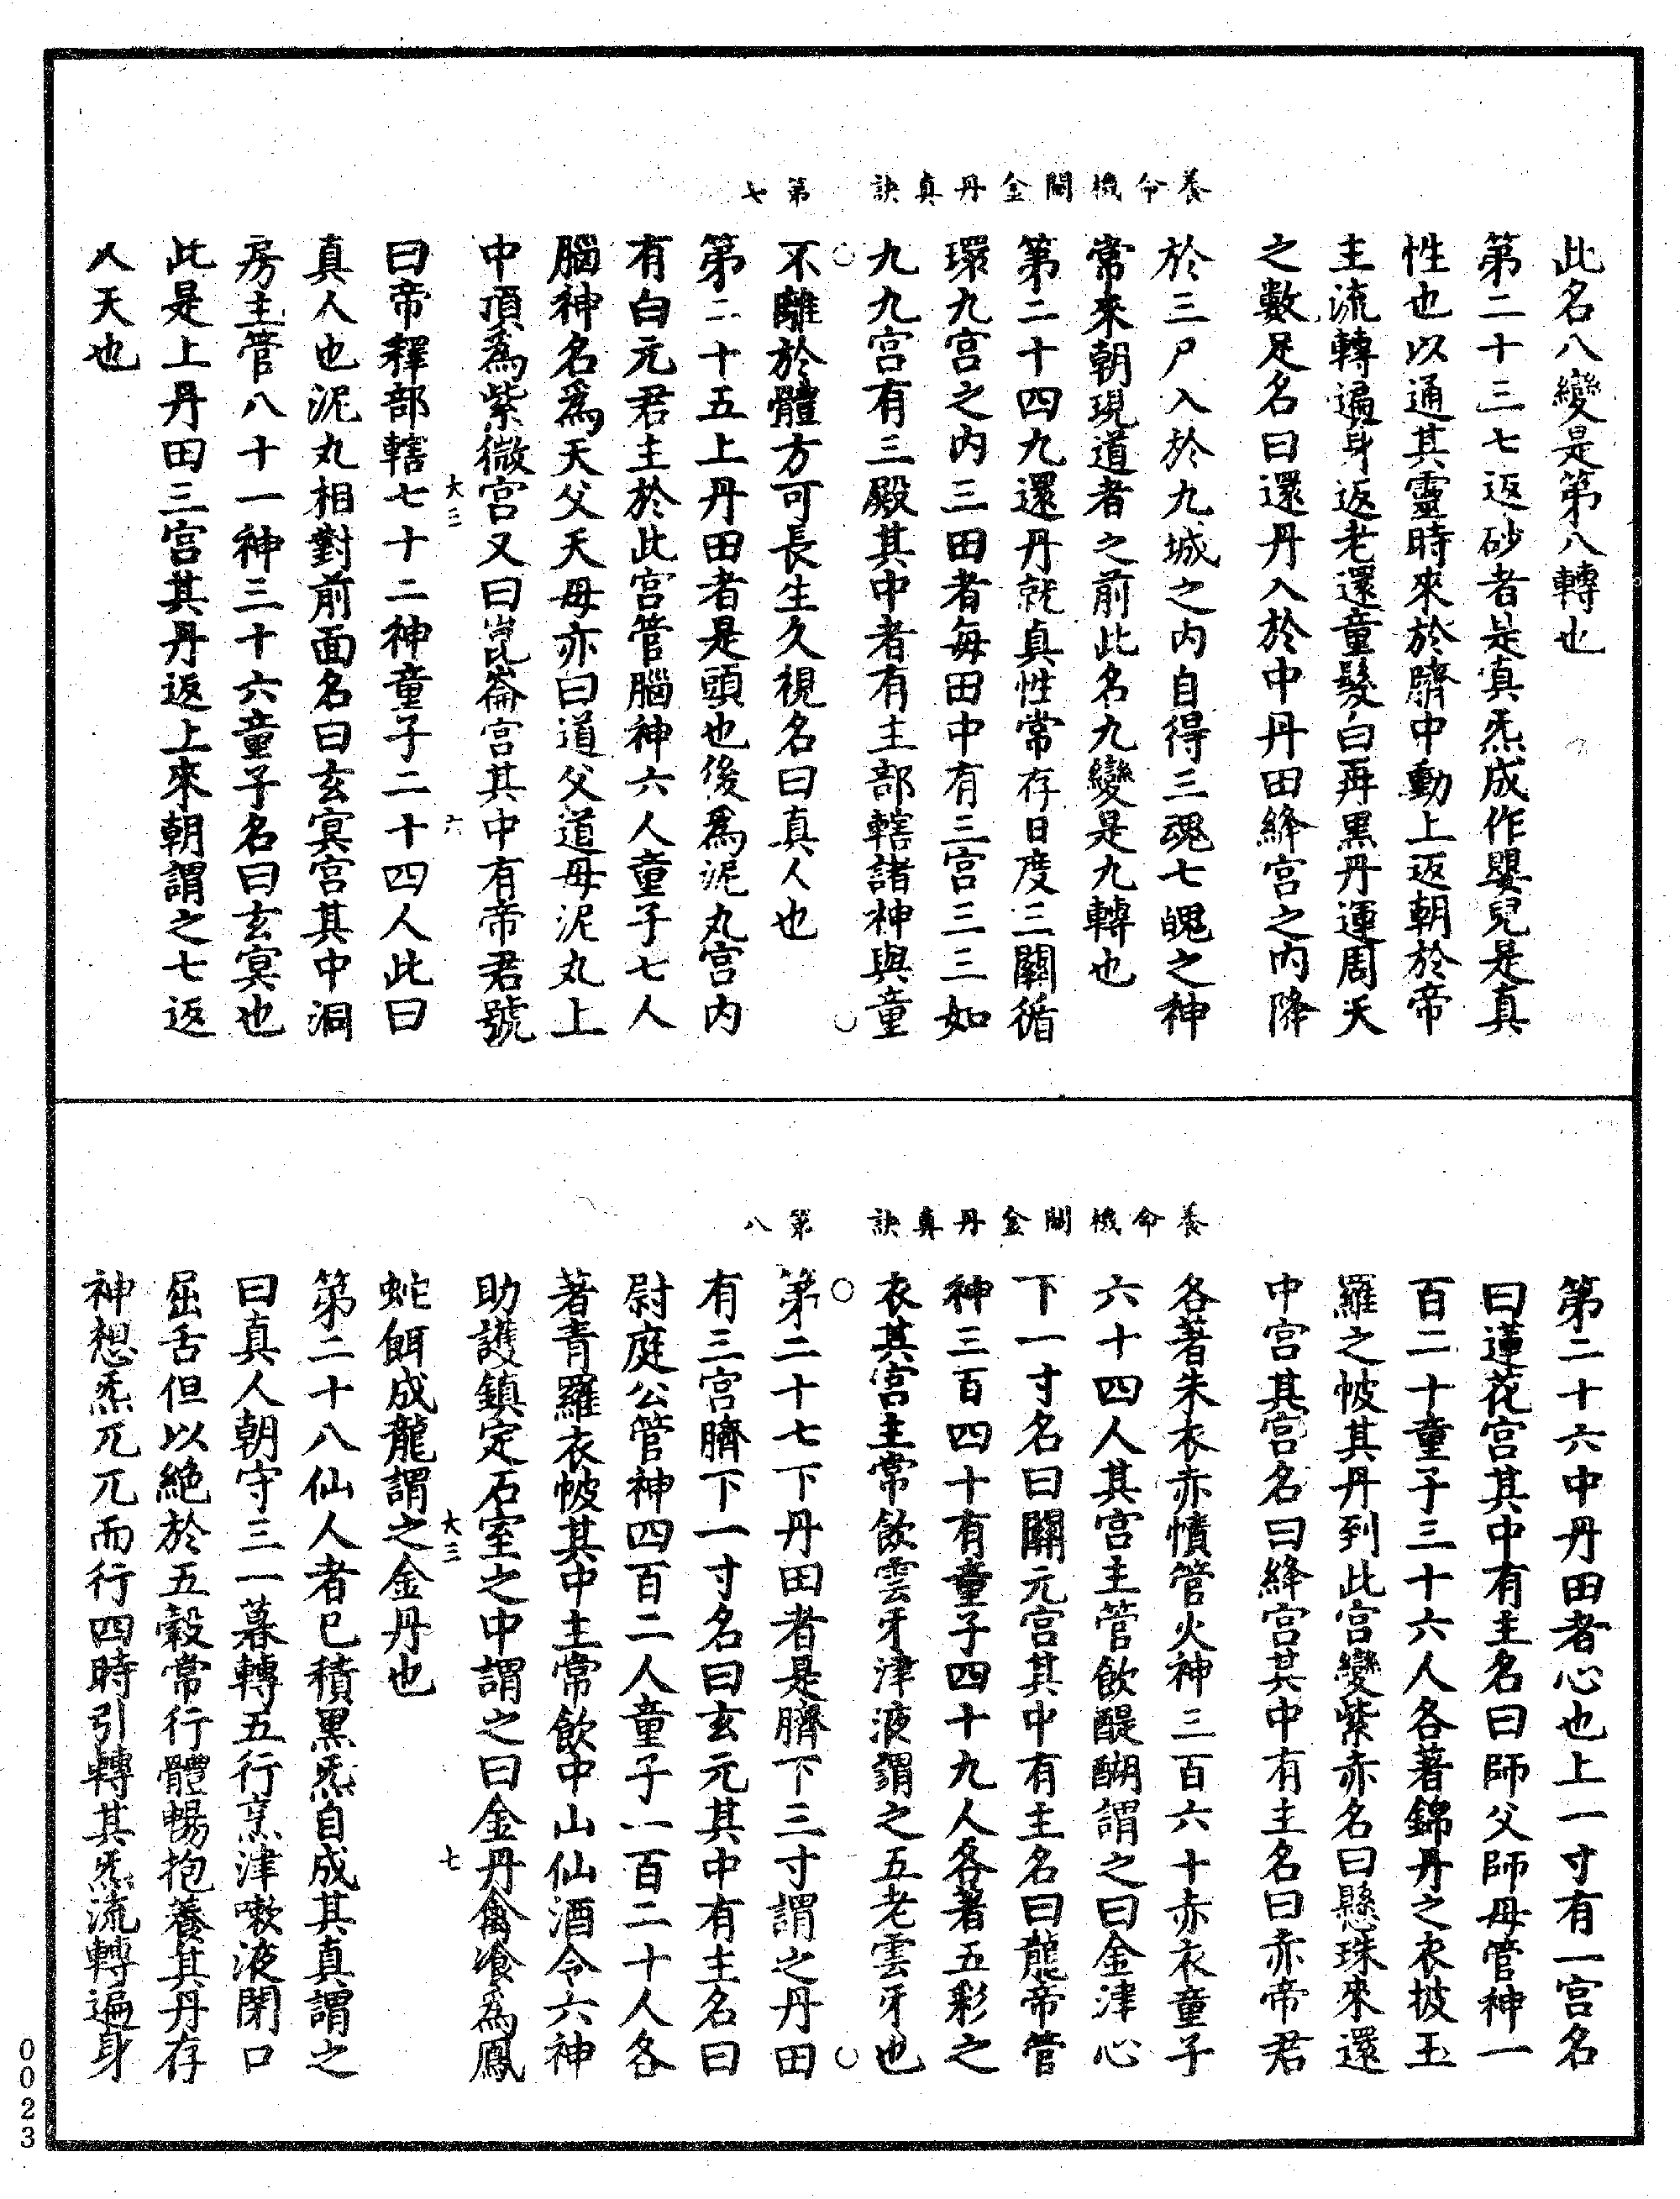 養命機關金丹真訣 第七
此名八變是第八轉也
第二十三七返砂者是真炁成作嬰兒是真
性也以通其靈時來於臍中動上返朝於帝
主流轉遍身返老還童髮白再黑丹運周天
之數足名曰還丹入於中丹田絳宮之內降
於三尸入於九城之內自得三魂七魄之神
常來朝現道者之前此名九變是九轉也
第二十四九還丹就真性常存日度三關循
環九宮之內三田者每田中有三宮三三如
九九宮有三殿其中者有主部轄諸神與童
不離於體方可長生久視名曰真人也
第二十五上丹田者是頭也後爲泥丸宮內
有白元君主於此宮管腦神六人童子七人
腦神名爲天父天母亦曰道父道母泥丸上
中頂爲紫微宮又曰崑崙宮其中有帝君號
大三 六
曰帝釋部轄七十二神童子二十四人此曰
真人也泥丸相對前面名曰玄冥宮其中洞
房主管八十一神三十六童子名曰玄冥也
此是上丹田三宮其丹返上來朝謂之七返
八天也
養命機關金丹真訣 第八
第二十六中丹田者心也上一寸有一宮名
曰蓮花宮其中有主名曰師父師母管神一
百二十童子三十六人各著錦丹之衣披玉
羅之帔其丹列此宮變紫赤名曰懸珠來還
中宮其宮名曰絳宮其中有主名曰赤帝君
各著朱衣赤幘管火神三百六十赤衣童子
六十四人其宮主管飲醍醐謂之曰金津心
下一寸名曰關元宮其中有主名曰龍帝管
神三百四十有童子四十九人各著五彩之
衣其宮主常飲雲牙津液謂之五老雲牙也
第二十七下丹田者是臍下三寸謂之丹田
有三宮臍下一寸名曰玄元其中有主名曰
尉庭公管神四百二人童子一百二十人各
著青羅衣帔其中主常飲中山仙酒令六神
助護鎮定石室之中謂之曰金丹禽飡爲鳳
大三 七
蛇餌成龍謂之金丹也
第二十八仙人者已積黑炁自成其真謂之
曰真人朝守三一暮轉五行烹津嗽液閉口
屈舌但以絕於五穀常行體暢抱養其丹存
神想炁兀兀而行四時引轉其炁流轉遍身
0023